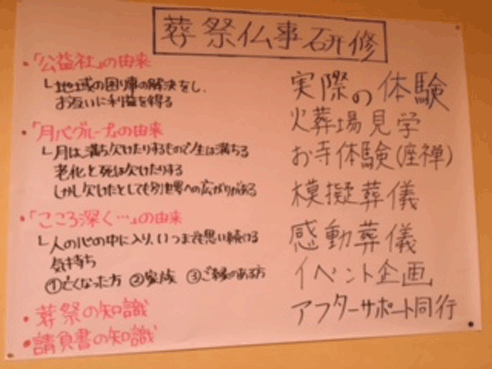 葬祭仏事研修
・「公益社」の由来
└地域の困り事の解決をし、
お互いに利益を得る
・「月バグループの由来
└月は、満ち欠けたりするもので生は満ちる
老化と死は欠けたりする
しかし欠けたとしても別世界への広がりがある
・「こころ深く…」の由来
└人の心の中に入り、いつまでも思い続ける
気持ち
①亡くなった方 ②家族 ③ご縁のある方
・葬祭の知識
・請負書の知識
実際の体験
火葬場見学
お寺体験(座禅)
模擬葬儀
感動葬儀
イベント企画
アフターサポート同行